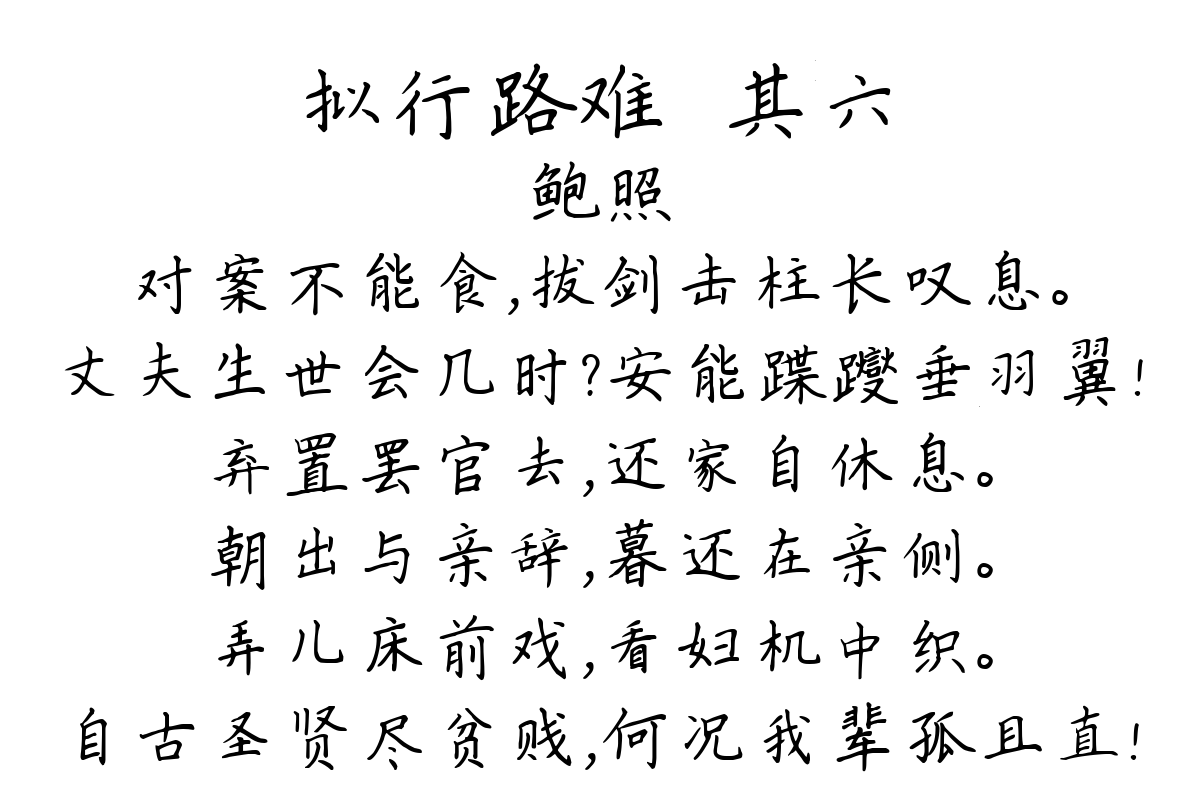 拟行路难 其六
鲍照
对案不能食,拔剑击柱长叹息。
丈夫生世会几时?安能蹀躞垂羽翼!
弃置罢官去,还家自休息。
朝出与亲辞,暮还在亲侧。
弄儿床前戏,看妇机中织。
自古圣贤尽贫贱,何况我辈孤且直!